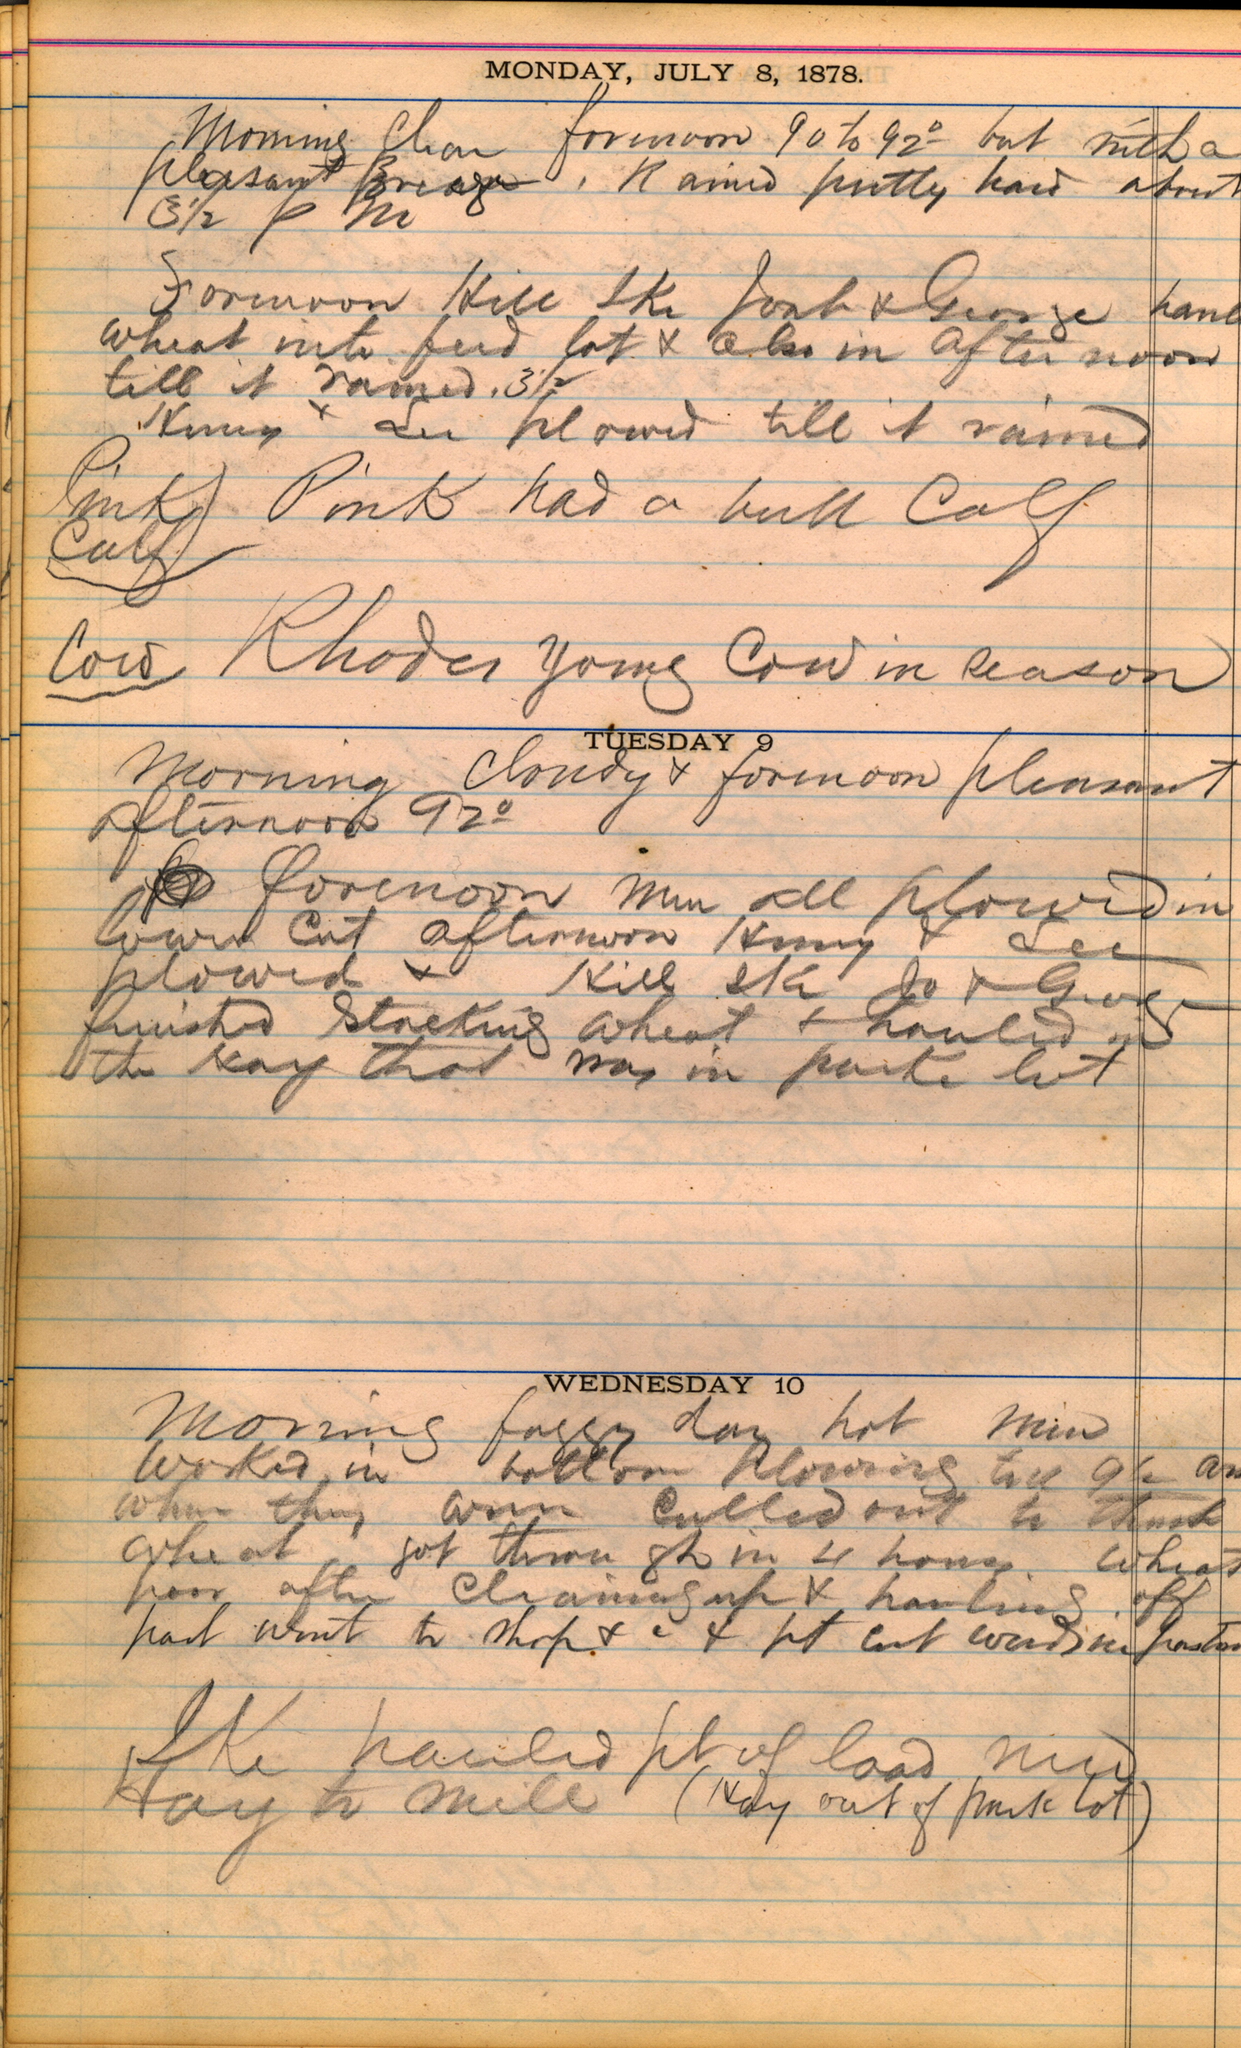 MONDAY, JULY 8, 1878.
Morning Clear forenoon 90 to 92° but with a
pleasant Breeze. Rained pretty hard about
3½ P M
Forenoon Hill Ike & George haul
wheat into feed lot & also in after noon
till it rained. 3½
Henry & Lee plowed till it rained
Pink Pink had a bull Calf
Calf
Cow Rhodes young Cow in season
TUESDAY 9
Morning Cloudy & forenoon pleasant
afternoon 92°
forenoon Men all plowed in
lower Cut afternoon Henry & Lee
plowed & Hill Ike Jo & George
finished Stacking wheat & hauled in
the Hay that was in park lot
WEDNESDAY 10
Morning foggy day hot Men
worked in bottom Plowing till 9½ am
when they were Called out to thresh
wheat got through in 4 hours wheat
poor after Cleaning up & hauling off
part went to shop & c & pt cut weeds in
Ike hauled pt of load
Hay to Mill (Hay out of park lot)